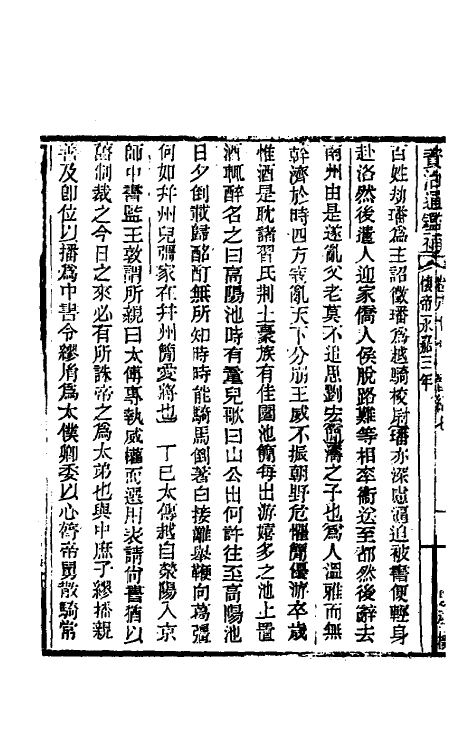 資治通鑑補 懷帝永嘉三年
百姓劫璠為主詔徵璠為越騎校尉璠亦深慮逼迫被書便輕身
赴洛然後遣人迎家僑人侯脫路難等相率衛送至都然後辭去
南州由是遂亂父老莫不追思劉宏簡濤之子也為人溫雅而無
幹濟於時四方寇亂天下分崩王威不振朝野危懼簡優游卒歲
惟酒是耽諸習氏荆土豪族有佳園池簡每出游嬉多之池上置
酒輒醉名之曰高陽池時有童兒歌曰山公出何許往至高陽池
日夕倒載歸酩酊無所知時時能騎馬倒著白接䍦舉鞭向葛彊
何如并州兒彊家在并州簡愛將也 丁巳太傅越自滎陽入京
師中書監王敦謂所親曰太傅專執威權而選用表請尚書猶以
舊制裁之今日之來必有所誅帝之為太弟也與中庶子繆播親
善及即位以播為中書令繆胤為太僕卿委以心膂帝舅散騎常